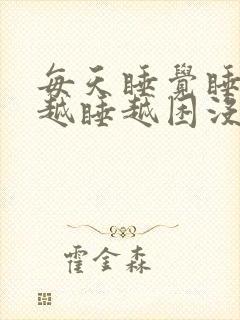 每天睡覺睡
越睡越困没
霍金森